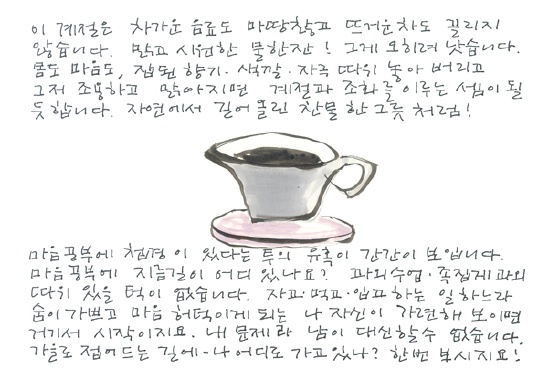 이 계절은 차가운 음료도 마땅찮고 뜨거운차도 끌리지
않습니다. 맑고 시원한 물한잔! 그게 오히려 낫습니다.
몸도 마음도, 잡된 향기·색깔·자극 따위 놓아 버리고
그저 조용하고 맑아지면 계절과 조화를 이루는 셈이 될
듯합니다. 자연에서 길어올린 찬물 한그릇 처럼!
마음공부에 첩경이 있다는 투의 유혹이 간간이 보입니다.
마음공부에 지름길이 어디 있나요? 과외수업·족집게과외
따위 있을 턱이 없습니다. 자고·먹고·입고 하는 일 하느라
숨이 가쁘고 마음 허덕이게 되는 나 자신이 가련해 보이면
거기서 시작이지요. 내 문제라 남이 대신할수 없습니다.
가을로 접어드는 길에-나 어디로 가고있나? 한번 보시지요!